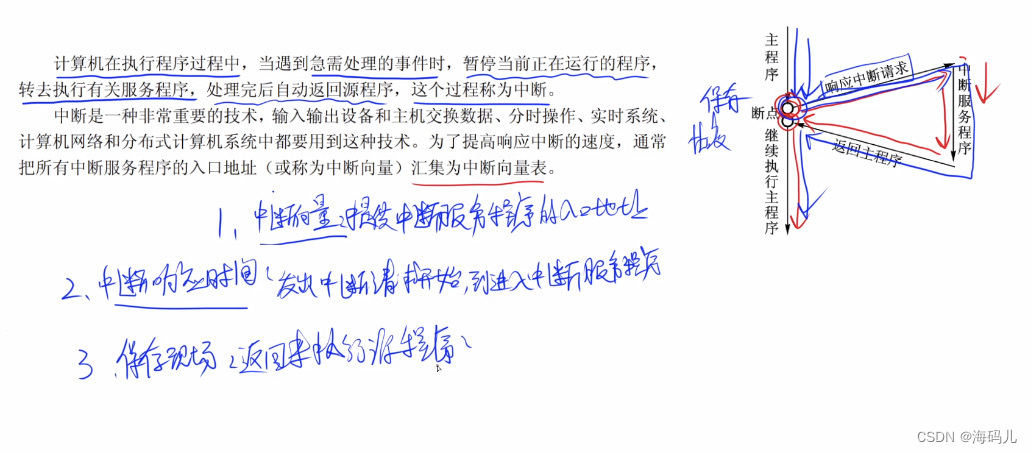 计算机在执行程序过程中，当遇到急需处理的事件时，暂停当前正在运行的程序，
转去执行有关服务程序，处理完后自动返回源程序，这个过程称为中断。
中断是一种非常重要的技术，输入输出设备和主机交换数据、分时操作、实时系统、
计算机网络和分布式计算机系统中都要用到这种技术。为了提高响应中断的速度，通常
把所有中断服务程序的入口地址（或称为中断向量）汇集为中断向量表。
主程序
响应中断请求
中断服务程序
保存
断点
恢复
返回主程序
继续执行主程序
1、中断向量：提供中断服务程序的入口地址
2、中断响应时间（发出中断请求开始，到进入中断服务程序
3、保存现场（返回来执行源程序）
CSDN @海码儿